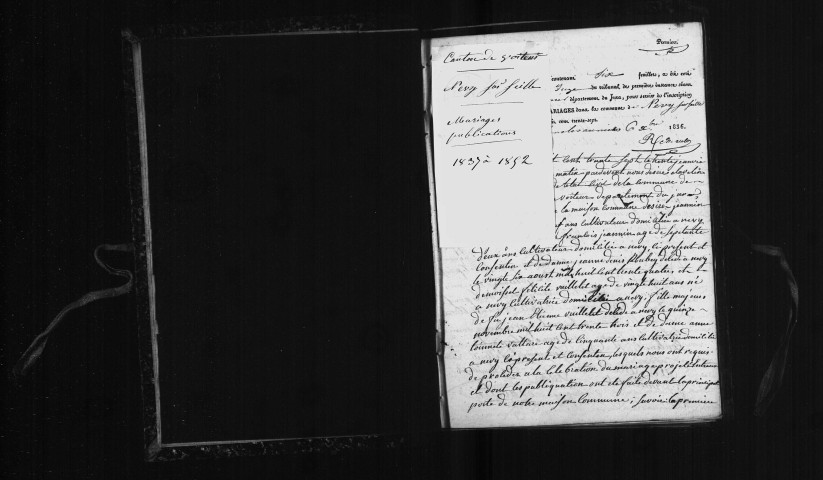 Canton de Voiteur
Nevy sur Seille
Mariages
publications
1837 à 1852
Premier
contenant six feuillets, a été coté
juge du tribunal de première instance séant
département du Jura, pour servir à l'inscription
MARIAGES dans la commune de Nevy sur Seille
cent trente-sept.
1836.
cent trente sept le trente janvier
matin pardevant nous
de l'état civil de la commune de
voiteur departement du jura
la maison commune desire jeannin
ans cultivateur domicilie a nevy
francois jeannin age de septante
deux ans cultivateur domicilie a nevy, ci present et
consentent et de dame jeanne denis decede a nevy
le vingt six aoust mil huit cent trente quatre, et
demoisel felicite vuillet age de vingt huit ans né
a nevy cultivatrice domicilie a nevy, fille majeure
de fu jean etienne vuillet decede a nevy le quinze
novembre mil huit cent trente trois et de dame anne
age de cinquante ans cultivatrice domicilie
a nevy ci present et consenten, lesquels nous ont requis
de procedes a la celebration du mariage projete entre eux
et dont les publiquation ont ete faite devant la principal
porte de notre maison commune; savoir la premiere